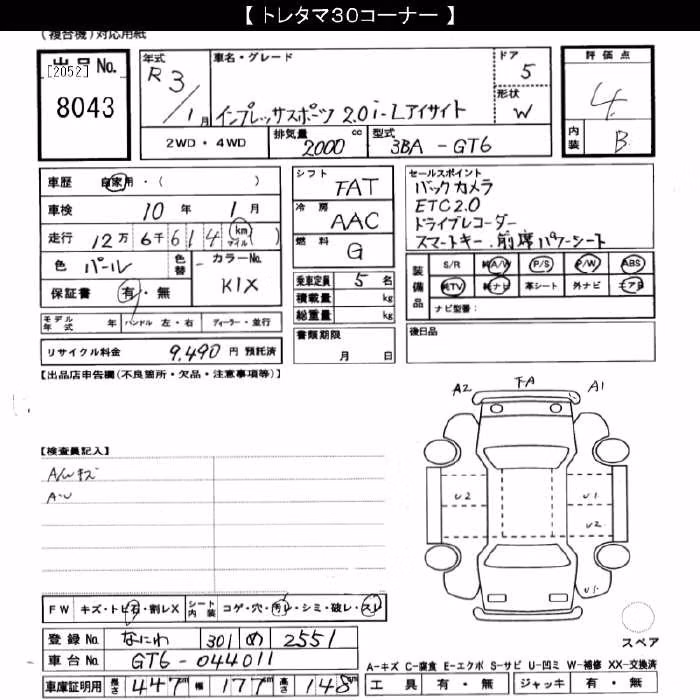 【 トレタマ30コーナー 】
(複合機)対応用紙
出品No.
[2052]
8043
年式 車名・グレード ドア
R3/1月 インプレッサスポーツ 2.0i-Lアイサイト 5
形状
W
2WD・4WD 排気量 2000 cc 型式 3BA-GT6
評価点
4
内装 B
車歴 自家用・( )
車検 10年 1月
走行 12万6千614 km マイル ( )
色 パール 色替 カラーNo. K1X
保証書 有・無
モデル年式 年 ハンドル 左・右 ディーラー・並行
リサイクル料金 9,490 円 預託済
シフト FAT
冷房 AAC
燃料 G
乗車定員 5 名
積載量 kg
総重量 kg
書類期限
月 日
セールスポイント
バックカメラ
ETC2.0
ドライブレコーダー
スマートキー.前席パワーシート
装備品 S/R 純A/W P/S P/W ABS
純TV 純ナビ 革シート 外ナビ エアB
ナビ型番:
後日品
【出品店申告欄(不良箇所・欠品・注意事項等)】
A2 F-A A1
【検査員記入】
A/Wキズ
A-U
U2 U1
U2
U1
FW キズ・トビ石・割レX シート内装 コゲ・穴・汚レ・シミ・破レ・スレ
登録No. なにわ 301 め 2551
車台No. GT6-044011
車庫証明用 長さ 447cm 幅 177cm 高さ 148cm
スペア
A-キズ C-腐食 E-エクボ S-サビ U-凹ミ W-補修 XX-交換済
工具 有・無 ジャッキ 有・無